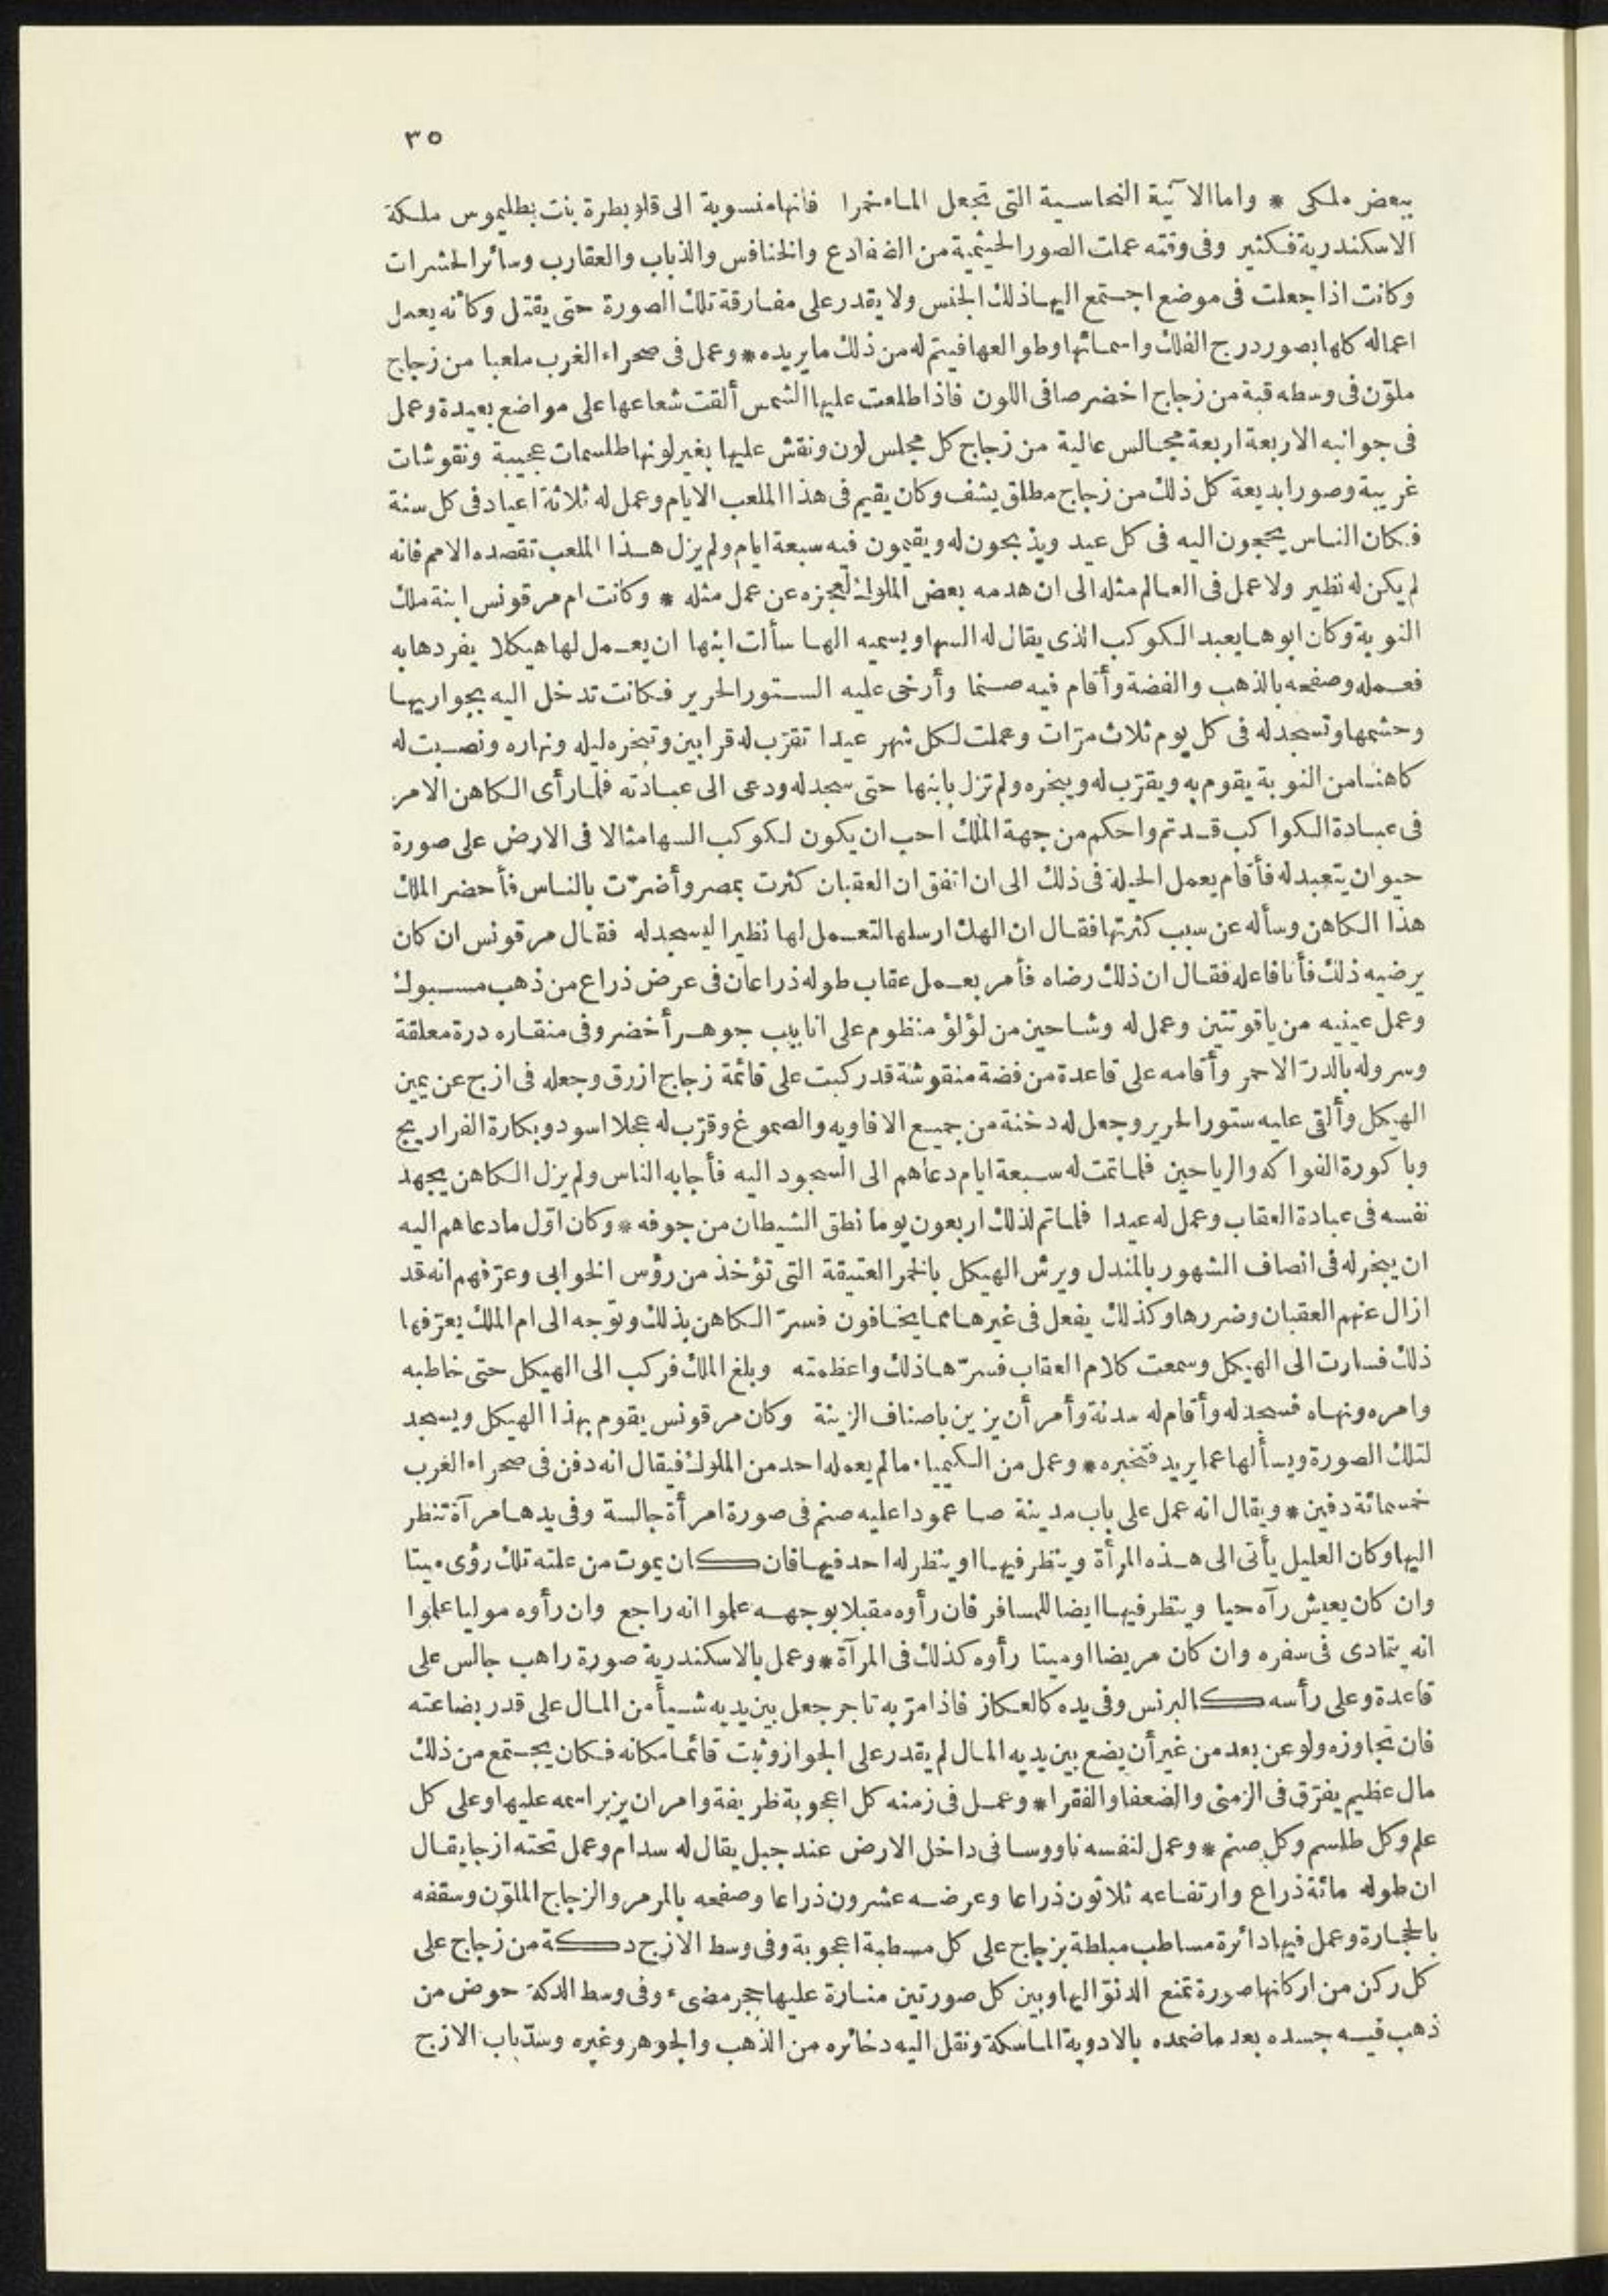 ٣٥
ببعض ملكى * واما الا آنية النحاسية التى تجعل الماء خمرا فانها منسوبة الى قلو بطرة بنت بطليموس ملكة
الاسكندرية فكثير وفى وقته عملت الصور الحيثمية من الضفادع والخنافس والذباب والعقارب وسائر الحشرات
وكانت اذا جعلت فى موضع اجتمع اليها ذلك الجنس ولا يقدر على مفارقة تلك الصورة حتى يقتل وكأنه يعمل
اعماله كلها بصور درج الفلك واسمائها وطوالعها فيتم له من ذلك ما يريده * وعمل فى صحراء الغرب ملعبا من زجاج
ملوّن فى وسطه قبة من زجاج اخضر صافى اللون فاذا طلعت عليها الشمس ألقت شعاعها على مواضع بعيدة وعمل
فى جوانبه الاربعة اربعة مجالس عالية من زجاج كل مجلس لون ونقش عليها بغير لونها طلسمات عجيبة ونقوشات
غريبة وصورا بديعة كل ذلك من زجاج مطلق يشف وكان يقيم فى هذا الملعب الايام وعمل له ثلاثة اعياد فى كل سنة
فكان الناس يحجون اليه فى كل عيد ويذبحون له ويقيمون فيه سبعة ايام ولم يزل هذا الملعب تقصده الامم فانه
لم يكن له نظير ولا عمل فى العالم مثله الى ان هدمه بعض الملوك لعجزه عن عمل مثله * وكانت ام مرقونس ابنة ملك
النوبة وكان ابوها يعبد الكوكب الذى يقال له السها ويسميه الها سألت ابنها ان يعمل لها هيكلا يفردها به
فعمله وصفحه بالذهب والفضة وأقام فيه صنما وأرخى عليه الستور الحرير فكانت تدخل اليه بجواريها
وحشمها وتسجد له فى كل يوم ثلاث مرّات وعملت لكل شهر عيدا تقرّب له قرابين وتبخره ليله ونهاره ونصبت له
كاهنا من النوبة يقوم به ويقرّب له ويبخره ولم تزل بابنها حتى سجد له ودعى الى عبادته فلما رأى الكاهن الامر
فى عبادة الكواكب قد تم واحكم من جهة الملك احب ان يكون لكوكب السها مثالا فى الارض على صورة
حيوان يتعبد له فأقام يعمل الحيلة فى ذلك الى ان اتفق ان العقبان كثرت بمصر وأضرّت بالناس فأحضر الملك
هذا الكاهن وسأله عن سبب كثرتها فقال ان الهك ارسلها لتعمل لها نظيرا ليسجد له فقال مرقونس ان كان
يرضيه ذلك فأنا فاعله فقال ان ذلك رضاه فأمر بعمل عقاب طوله ذراعان فى عرض ذراع من ذهب مسبوك
وعمل عينيه من ياقوتتين وعمل له وشاحين من لؤلؤ منظوم على انابيب جوهر أخضر وفى منقاره درة معلقة
وسروله بالدرّ الاحمر وأقامه على قاعدة من فضة منقوشة قد ركبت على قائمة زجاج ازرق وجعله فى ازج عن يمين
الهيكل وألقى عليه ستور الحرير وجعل له دخنة من جميع الافاويه والصموغ وقرّب له عجلا اسود وبكارة الفراريج
وباكورة الفواكه والرياحين فلما تمت له سبعة ايام دعاهم الى السجود اليه فأجابه الناس ولم يزل الكاهن يجهد
نفسه فى عبادة العقاب وعمل له عيدا فلما تم لذلك اربعون يوما نطق الشيطان من جوفه * وكان اوّل ما دعاهم اليه
ان يبخر له فى انصاف الشهور بالمندل ويرش الهيكل بالخمر العتيقة التى تؤخذ من رؤس الخوابى وعرّفهم انه قد
ازال عنهم العقبان وضررها وكذلك يفعل فى غيرها مما يخافون فسرّ الكاهن بذلك وتوجه الى ام الملك يعرّفها
ذلك فسارت الى الهيكل وسمعت كلام العقاب فسرّها ذلك واعظمته وبلغ الملك فركب الى الهيكل حتى خاطبه
وامره ونهاه فسجد له وأقام له سدنة وأمر أن يزين باصناف الزينة وكان مرقونس يقوم بهذا الهيكل ويسجد
لتلك الصورة ويسألها عما يريد فتخبره * وعمل من الكيمياء ما لم يعمله احد من الملوك فيقال انه دفن فى صحراء الغرب
خمسمائة دفين * ويقال انه عمل على باب مدينة صا عمودا عليه صنم فى صورة امرأة جالسة وفى يدها مرآة تنظر
اليها وكان العليل يأتى الى هذه المرأة وينظر فيها او ينظر له احد فيها فان كان يموت من علته تلك رؤى ميتا
وان كان يعيش رآه حيا وينظر فيها ايضا للمسافر فان رأوه مقبلا بوجهه علموا انه راجع وان رأوه موليا علموا
انه يتمادى فى سفره وان كان مريضا او ميتا رأوه كذلك فى المرآة * وعمل بالاسكندرية صورة راهب جالس على
قاعدة وعلى رأسه كالبرنس وفى يده كالعكاز فاذا مرّ به تاجر جعل بين يديه شيأ من المال على قدر بضاعته
فان تجاوزه ولو عن بعد من غير أن يضع بين يديه المال لم يقدر على الجواز وثبت قائما مكانه فكان يجتمع من ذلك
مال عظيم يفرّق فى الزمنى والضعفا والفقرا * وعمل فى زمنه كل اعجوبة ظريفة وامر ان يزبر اسمه عليها وعلى كل
علم وكل طلسم وكل صنم * وعمل لنفسه ناووسا فى داخل الارض عند جبل يقال له سدام وعمل تحته ازجا يقال
ان طوله مائة ذراع وارتفاعه ثلاثون ذراعا وعرضه عشرون ذراعا وصفحه بالمرمر والزجاج الملوّن وسقفه
بالحجارة وعمل فيها دائرة مساطب مبلطة بزجاج على كل مسطبة اعجوبة وفى وسط الازج دكة من زجاج على
كل ركن من اركانها صورة تمنع الدنوّ اليها وبين كل صورتين منارة عليها حجر مضىء وفى وسط الدكة حوض من
ذهب فيه جسده بعد ما ضمده بالادوية الماسكة ونقل اليه دخائره من الذهب والجوهر وغيره وسدّ باب الازج